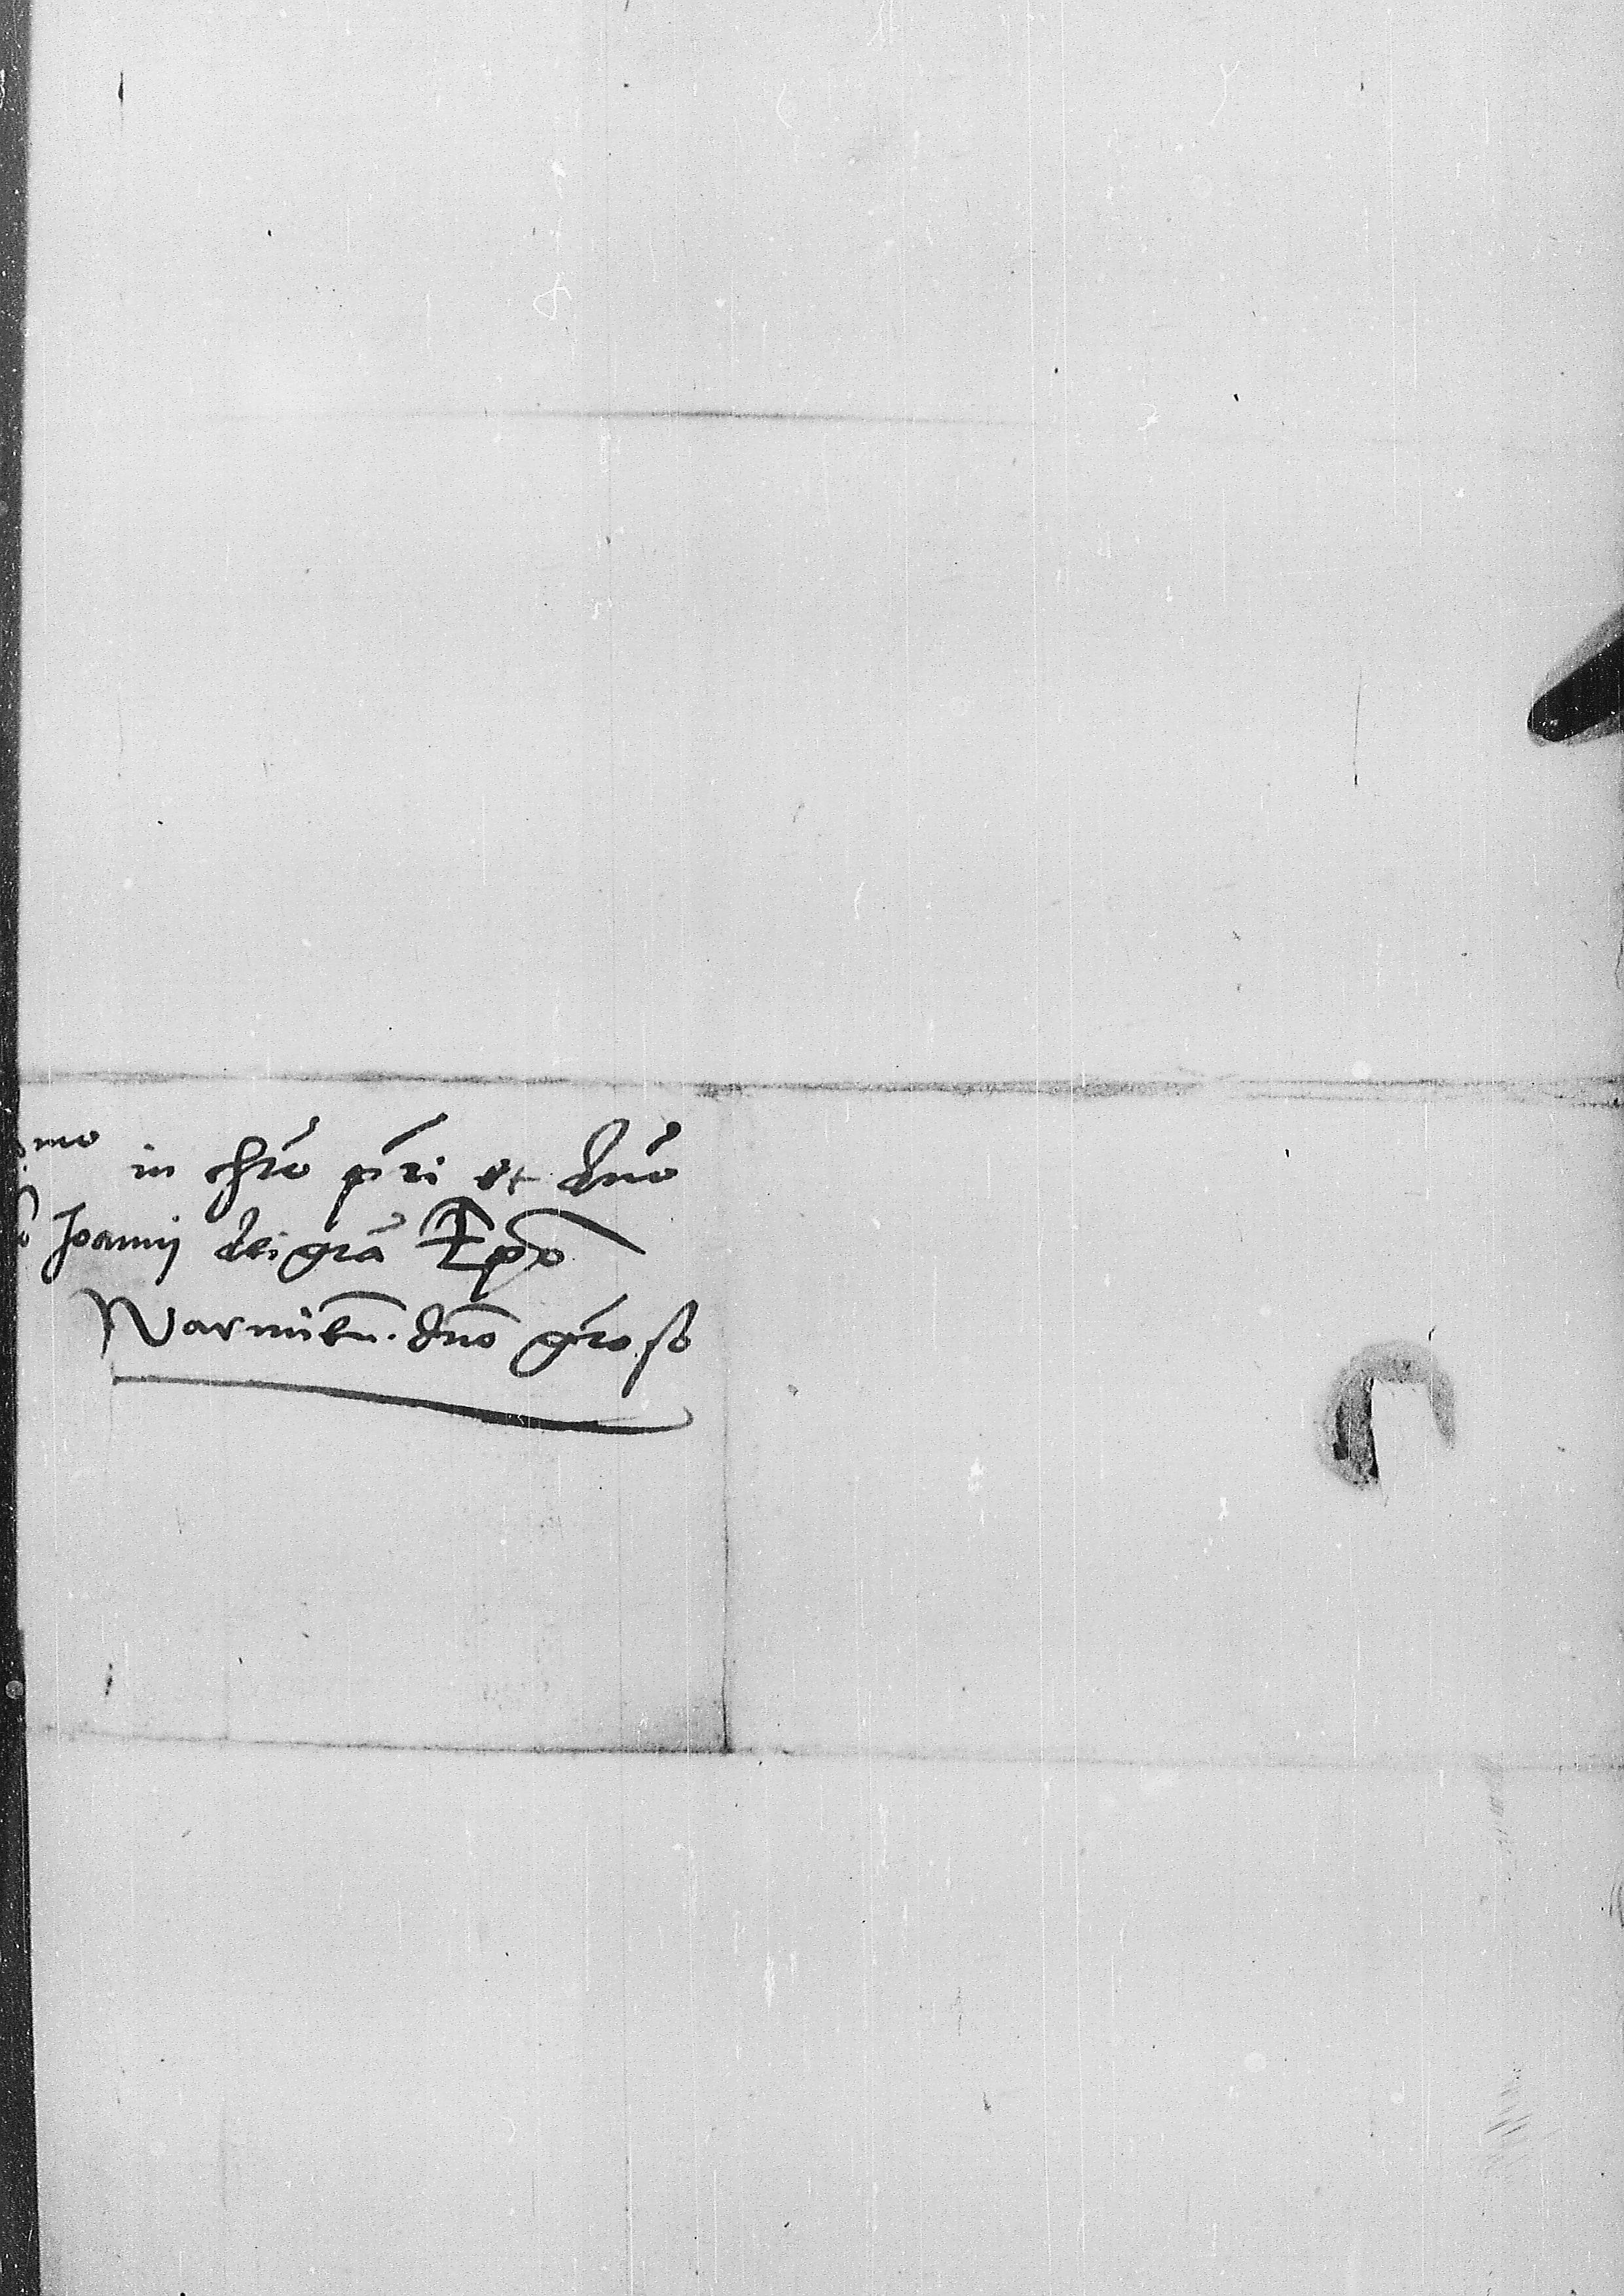 mo in chro pri et dno
Joanni dei gra Epo
Warmien. dno gro\so